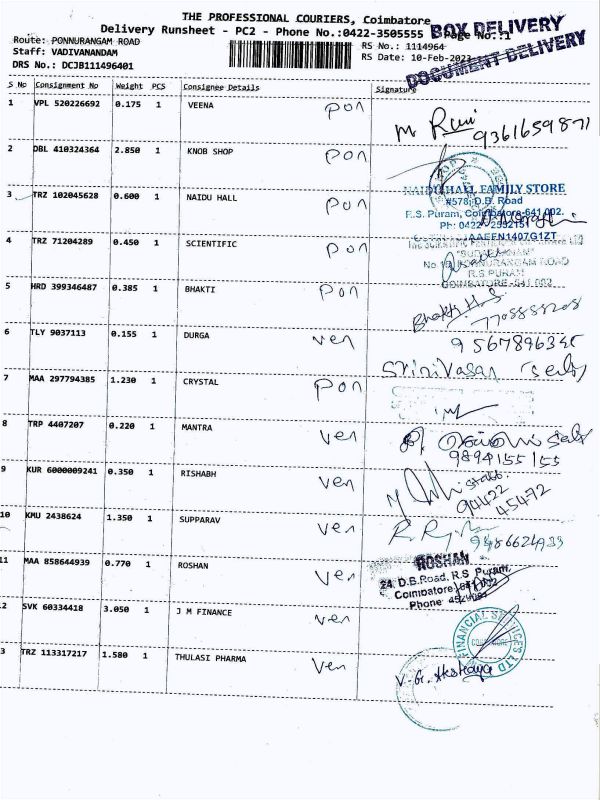 THE PROFESSIONAL COURIERS, Coimbatore
Delivery Runsheet - PC2 - Phone No.:0422-3505555 Page No.:1
BOX DELIVERY
DOCUMENT DELIVERY
Route: PONNURANGAM ROAD
RS No.: 1114964
Staff: VADIVANANDAM
RS Date: 10-Feb-2023
DRS No.: DCJB111496401
S No Consignment No Weight PCS Consignee Details Signature
1 VPL 520226692 0.175 1 VEENA pon
9361659871
2 DBL 410324364 2.850 1 KNOB SHOP pon
3 TRZ 102045628 0.600 1 NAIDU HALL pon
NAIDU HALL FAMILY STORE
#578, D.B. Road
R.S. Puram, Coimbatore-641 002.
Ph: 0422 - 2552151
4 TRZ 71204289 0.450 1 SCIENTIFIC pon
PONNURANGAM ROAD
R.S PURAM
COIMBATORE-641 002
5 HRD 399346487 0.385 1 BHAKTI pon
6 TLY 9037113 0.155 1 DURGA ven
Srinivasan
7 MAA 297794385 1.230 1 CRYSTAL pon
8 TRP 4407207 0.220 1 MANTRA ven
9894155155
9 KUR 6000009241 0.350 1 RISHABH ven
94422
45472
10 KMU 2438624 1.350 1 SUPPARAV ven
11 MAA 858644939 0.770 1 ROSHAN ven
ROSHAN
24, D.B.Road, R.S. Puram,
Coimbatore-641 002
Phone
2 SVK 60334418 3.050 1 J M FINANCE ven
FINANCIAL SERVICES LTD
3 TRZ 113317217 1.580 1 THULASI PHARMA ven
V. G. Akshaya